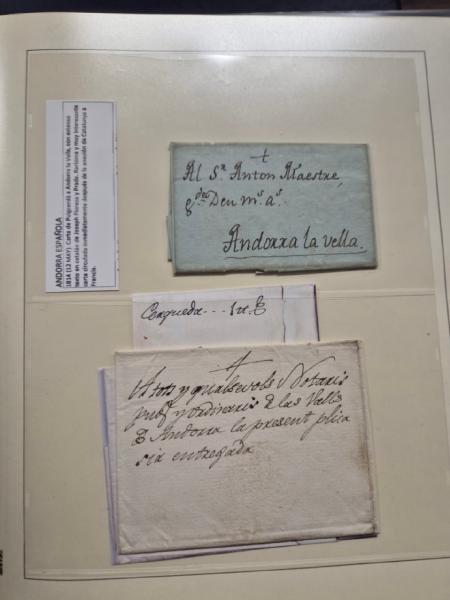 ANDORRA ESPAÑOLA
1814 (12 MAY). Carta de Puigcerdá a Andorra la Vella, con extenso
texto en catalán de Joseph Floresa y Prada. Rarísima y muy interesante
carta circulada inmediatamente después de la anexión de Catalunya a
Francia.
+
Al Sr Anton Maestre,
gde Deu ms as
Andorra la vella.
Cerqueda
+
A tots y qualsevols Notaris
y ordinaris de las Valls
de Andorra la present plica
sia entregada